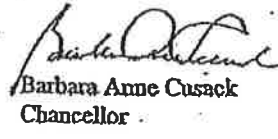 Barbara Anne Cusack
Chancellor